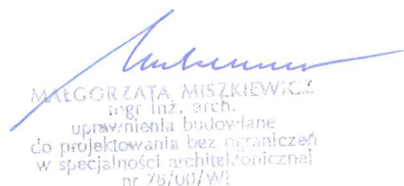 MAŁGORZATA MISZKIEWICZ
mgr inż. arch.
uprawnienia budowlane
do projektowania bez ograniczeń
w specjalności architektonicznej
nr 78/00/Wł